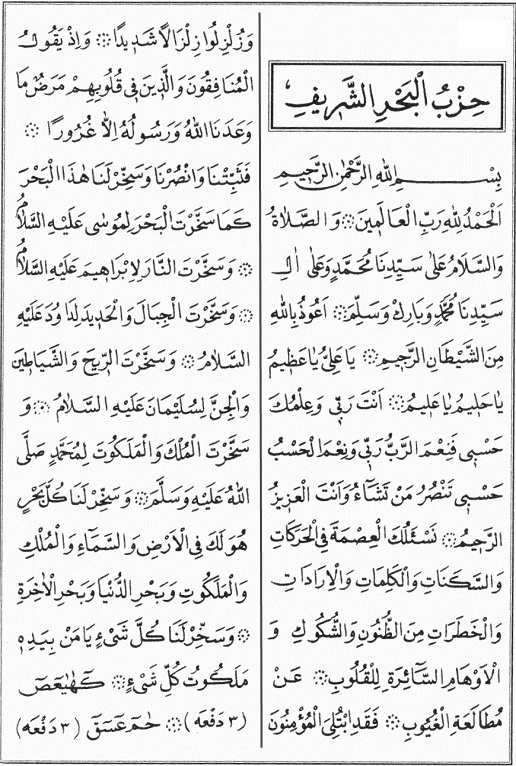 حِزْبُ الْبَحْرِ الشَّرِيفِ
بِسْمِ اللهِ الرَّحْمٰنِ الرَّحِيمِ
اَلْحَمْدُ لِلّٰهِ رَبِّ الْعَالَمِينَ ۞ وَالصَّلَاةُ
وَالسَّلَامُ عَلٰى سَيِّدِنَا مُحَمَّدٍ وَعَلٰى اٰلِ
سَيِّدِنَا مُحَمَّدٍ وَبَارِكْ وَسَلِّمْ ۞ اَعُوذُ بِاللهِ
مِنَ الشَّيْطَانِ الرَّجِيمِ ۞ يَا عَلِيُّ يَا عَظِيمُ
يَا حَلِيمُ يَا عَلِيمُ ۞ اَنْتَ رَبِّي وَعِلْمُكَ
حَسْبِي فَنِعْمَ الرَّبُّ رَبِّي وَنِعْمَ الْحَسْبُ
حَسْبِي تَنْصُرُ مَنْ تَشَاءُ وَاَنْتَ الْعَزِيزُ
الرَّحِيمُ ۞ نَسْئَلُكَ الْعِصْمَةَ فِي الْحَرَكَاتِ
وَالسَّكَنَاتِ وَالْكَلِمَاتِ وَالْاِرَادَاتِ
وَالْخَطَرَاتِ مِنَ الظُّنُونِ وَالشُّكُوكِ وَ
الْاَوْهَامِ السَّٓائِرَةِ لِلْقُلُوبِ ۞ عَنْ
مُطَالَعَةِ الْغُيُوبِ ۞ فَقَدِ ابْتُلِيَ الْمُؤْمِنُونَ
وَزُلْزِلُوا زِلْزَالًا شَدِيدًا ۞ وَاِذْ يَقُولُ
الْمُنَافِقُونَ وَالَّذِينَ فِي قُلُوبِهِمْ مَرَضٌ مَا
وَعَدَنَا اللهُ وَرَسُولُهُ اِلَّا غُرُورًا ۞
فَثَبِّتْنَا وَانْصُرْنَا وَسَخِّرْ لَنَا هٰذَا الْبَحْرَ
كَمَا سَخَّرْتَ الْبَحْرَ لِمُوسٰى عَلَيْهِ السَّلَامُ
۞ وَسَخَّرْتَ النَّارَ لِاِبْرَاهِيمَ عَلَيْهِ السَّلَامُ
۞ وَسَخَّرْتَ الْجِبَالَ وَالْحَدِيدَ لِدَاوُدَ عَلَيْهِ
السَّلَامُ ۞ وَسَخَّرْتَ الرِّيحَ وَالشَّيَاطِينَ
وَالْجِنَّ لِسُلَيْمَانَ عَلَيْهِ السَّلَامُ ۞ وَ
سَخَّرْتَ الْمُلْكَ وَالْمَلَكُوتَ لِمُحَمَّدٍ صَلَّى
اللهُ عَلَيْهِ وَسَلَّمَ ۞ وَسَخِّرْ لَنَا كُلَّ بَحْرٍ
هُوَ لَكَ فِي الْاَرْضِ وَالسَّمَٓاءِ وَالْمُلْكِ
وَالْمَلَكُوتِ وَبَحْرِ الدُّنْيَا وَبَحْرِ الْاٰخِرَةِ
۞ وَسَخِّرْ لَنَا كُلَّ شَيْءٍ يَا مَنْ بِيَدِهِ
مَلَكُوتُ كُلِّ شَيْءٍ ۞ كٓهٰيٰعٓصٓ
(٣ دَفْعَه) ۞ حٰمٓ عٓسٓقٓ (٣ دَفْعَه)